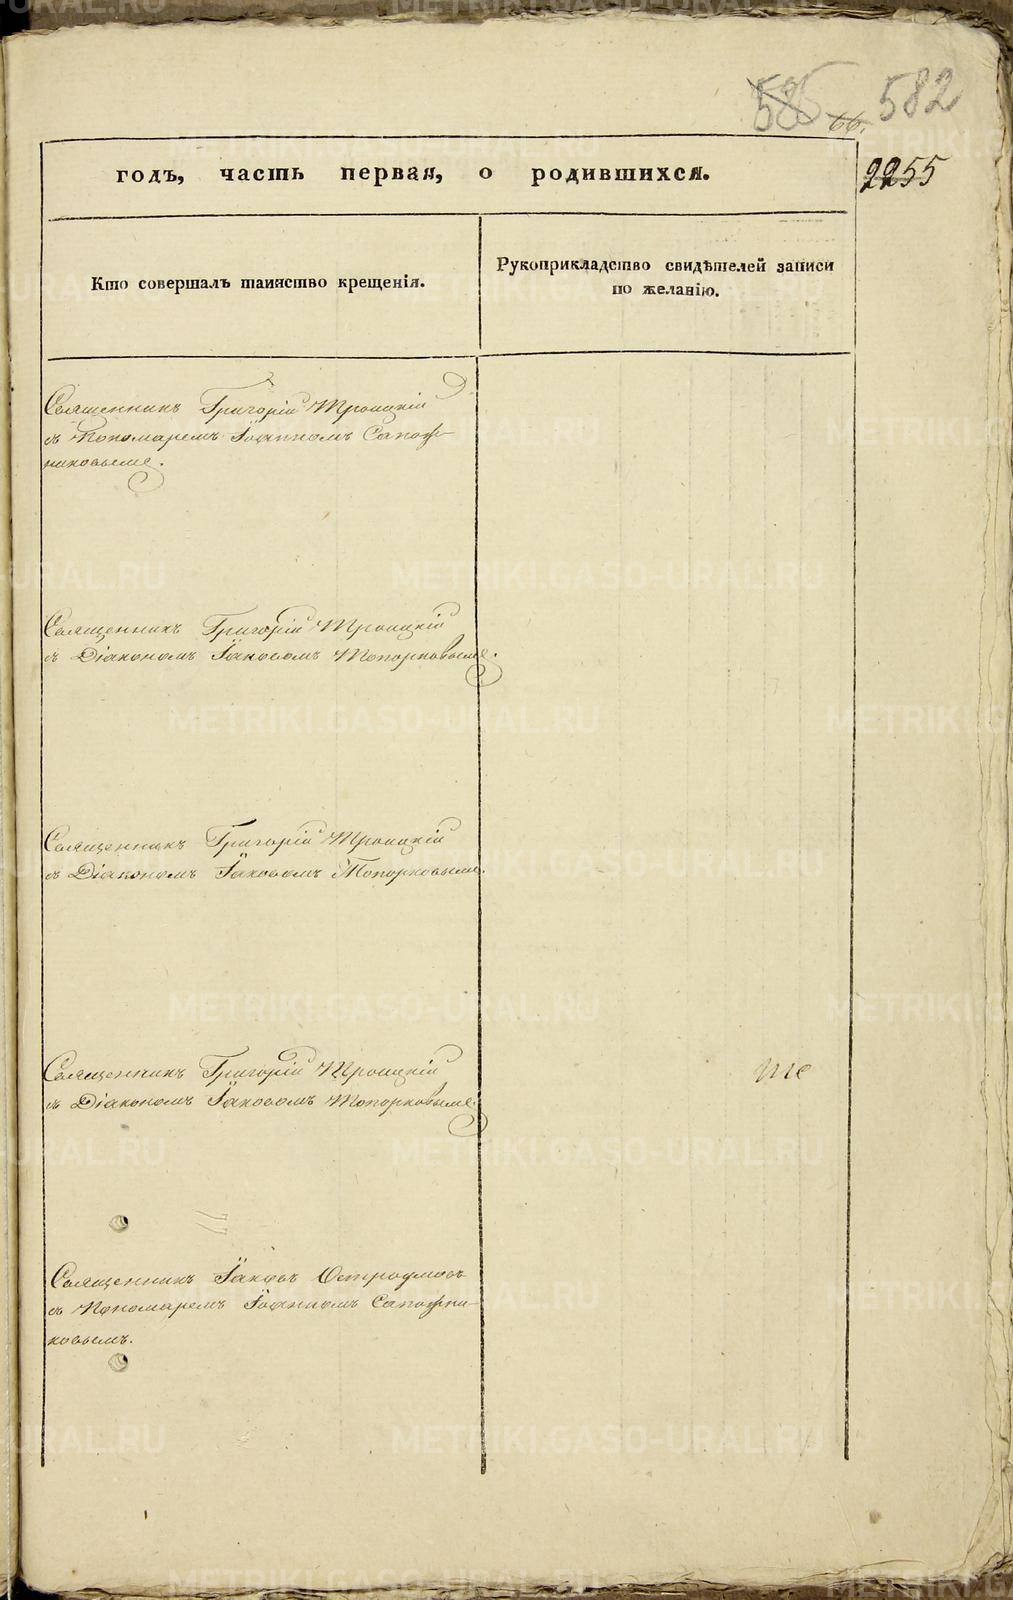 585 66. 582
2255
годъ, часть первая, о родившихся.
Кто совершалъ таинство крещенія.
Рукоприкладство свидѣтелей записи
по желанію.
Священникъ Григорій Троицкій
съ Пономаремъ Іоанномъ Сапож-
никовымъ.
Священникъ Григорій Троицкій
съ Діакономъ Іаковомъ Топорковымъ.
Священникъ Григорій Троицкій
съ Діакономъ Іаковомъ Топорковымъ.
Священникъ Григорій Троицкій
съ Діакономъ Іаковомъ Топорковымъ.
Священникъ Іаковъ Остроумовъ
съ Пономаремъ Іоанномъ Сапожни-
ковымъ.
METRIKI.GASO-URAL.RU